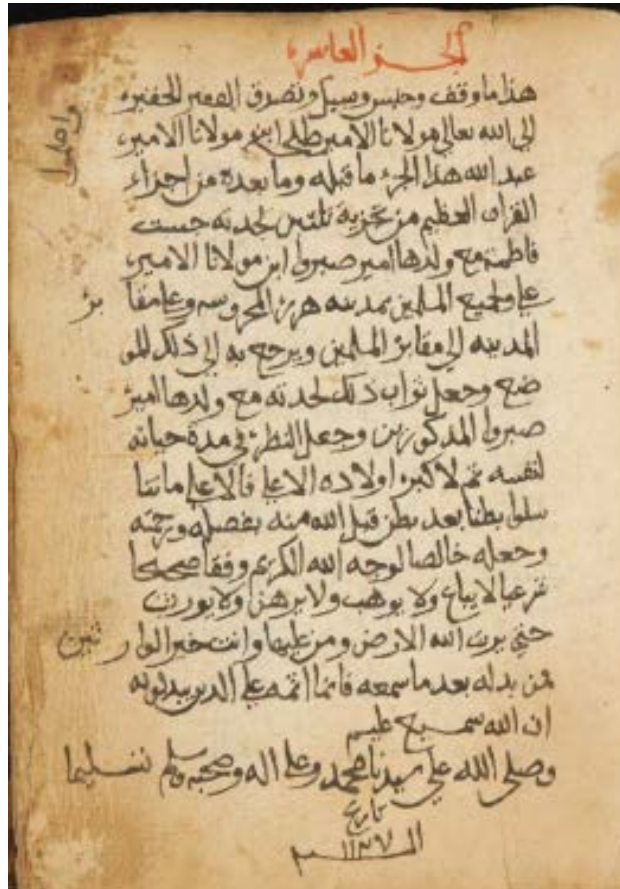 الجزؤ العاشره
هذا ما وقف وحبس وسبل وتصدق الفقير الحقير
الي الله تعالي مولانا الامير طلحه ابن مولانا الامير
عبد الله هذا الجزء ما قبله وما بعده من اجزاء
القران العظيم من تجزية ثلثين لجدته جست
فاطمة مع ولدها امير صبروا ابن مولانا الامير
علي ولجميع المسلمين بمدينه هرر المحروسه وعلي مقا بر
المدينه الي مقابر المسلمين ويرجع به الي ذلك المو
ضع وجعل ثواب ذلك لجدته مع ولدها امير
صبروا المذكورين وجعل النظر في مدة حياته
لنفسه ثم لاكبر اولاده الاعلي فالاعلي ما تنا
سلوا بطنا بعد بطن قبل الله منه بفضله ورحمته
وجعله خالصا لوجه الله الكريم وقفا صحيحا
شرعيا لا يباع ولا يوهب ولا يرهن ولا يورث
حتي يرث الله الارض ومن عليها وانت خير الوار ثين
فمن بدله بعد ما سمعه فانما اثمه علي الذين يبدلونه
ان الله سميع عليم
وصلي الله علي سيدنا محمد وعلي اله وصحبه وسلم تسليما
تاريخ